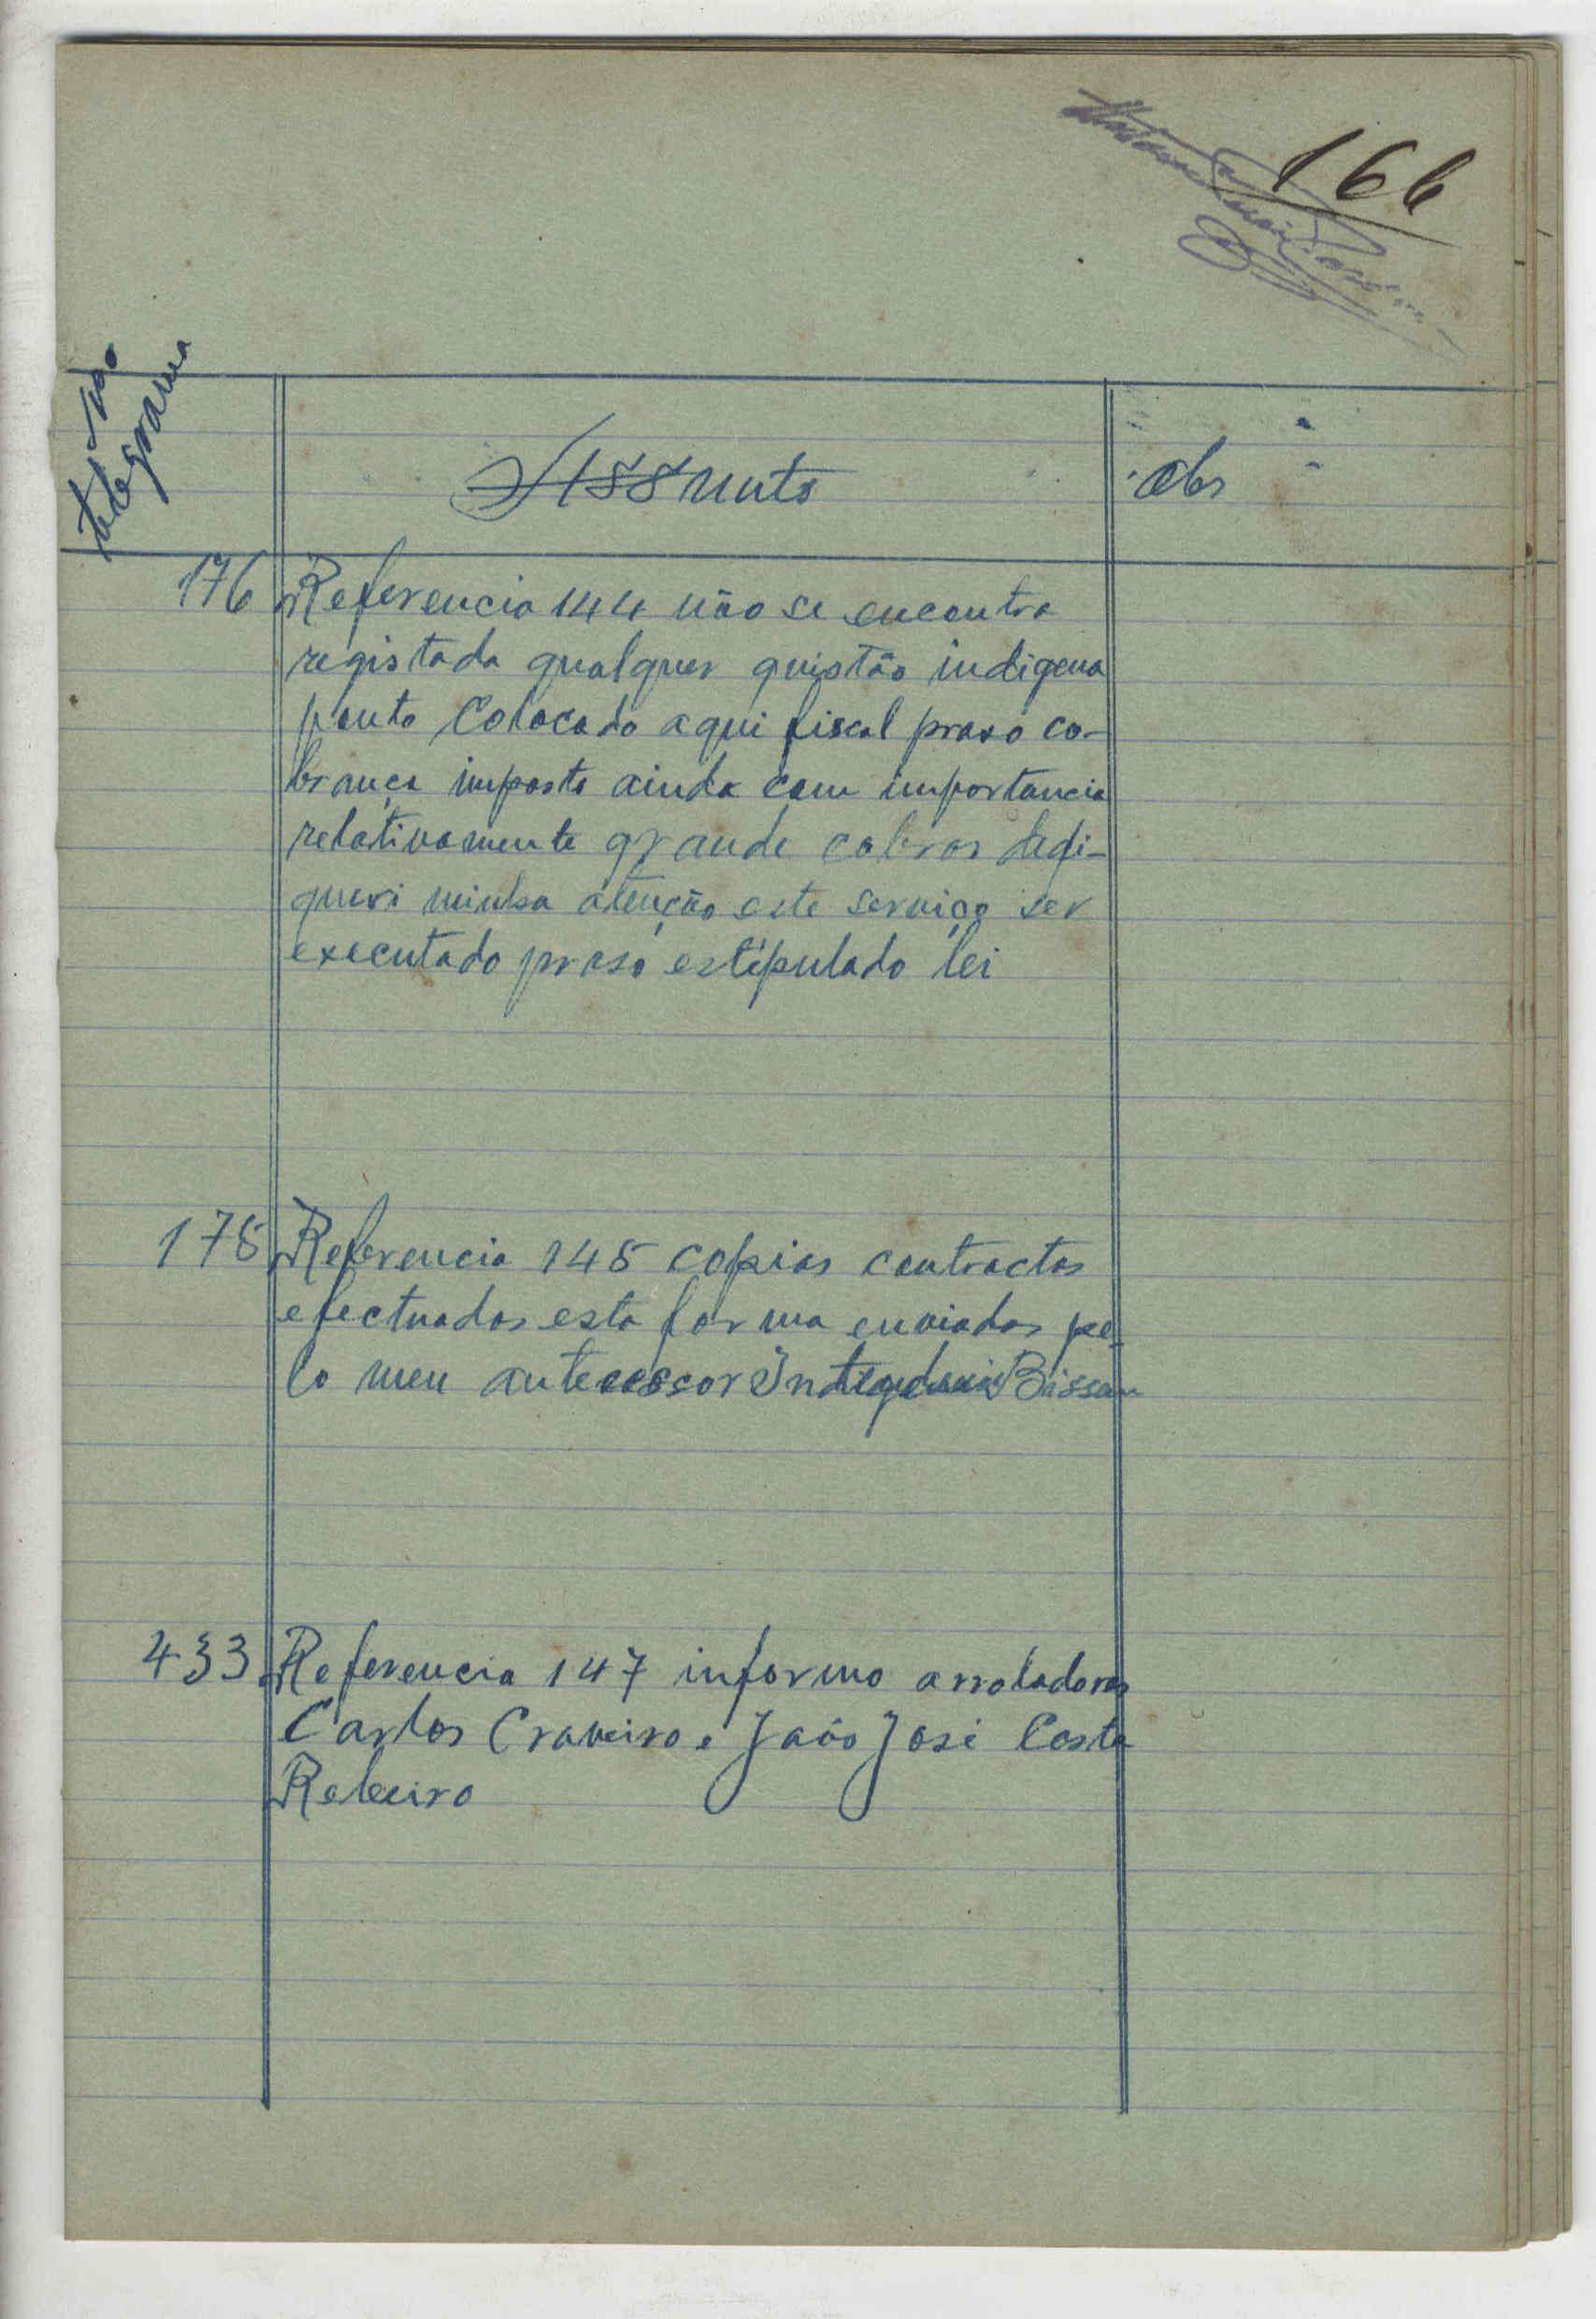 166
telegrama
Assunto
Obs
176 Referencia 144 não se encontra
registada qualquer quistão indigena
ponto Colocado aqui fiscal praso co-
brança imposto ainda com importancia
relativamente grande cobrar
minha atenção este serviço ser
executado praso estipulado lei
178 Referencia 145 copias contractos
efectuados esta forma enviadas pe-
lo meu antecessor Bissau
433 Referencia 147 informo arroladores
Carlos Craveiro e João José Costa
Rebeiro